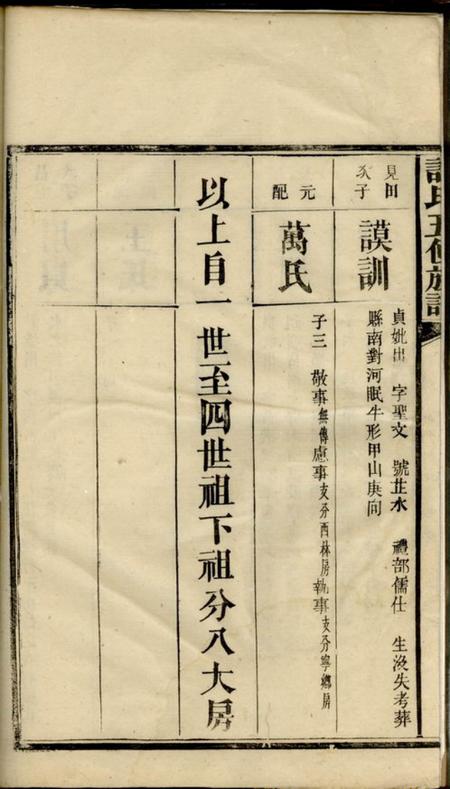 五修族譜
見田
次子
謨訓
貞妣出　字聖文　號芷水　禮部儒仕　生沒失考葬
縣南對河眠牛形甲山庚向
元配
萬氏
子三　敬事無傳慮事支分西林房執事支分寧鄉房
以上自一世至四世祖下祖分八大房